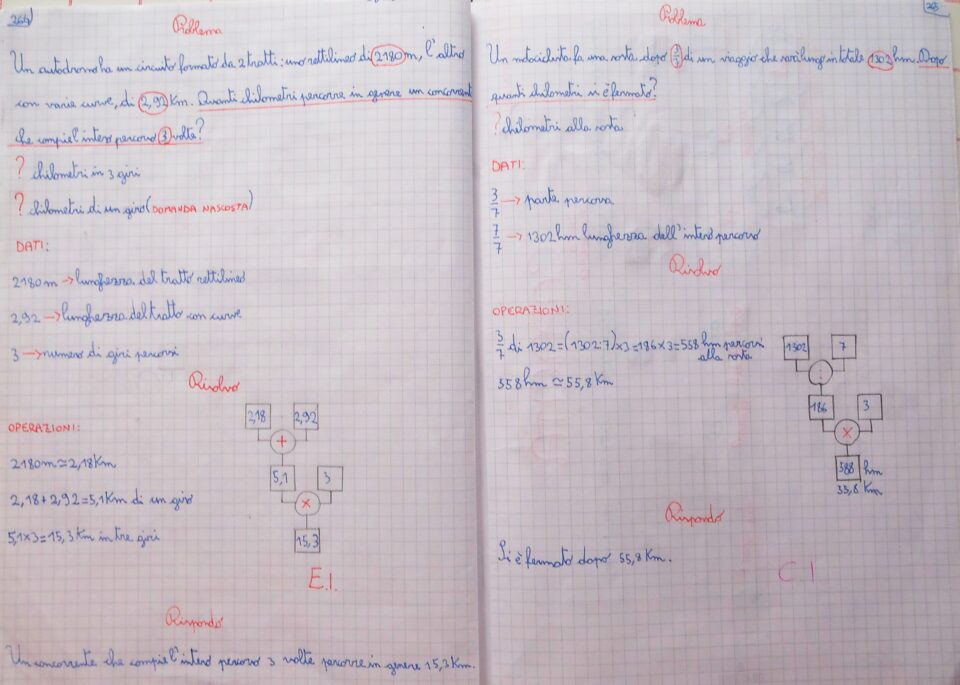 264
Problema
Un autodromo ha un circuito formato da 2 tratti: uno rettilineo di 2180 m, l'altro
con varie curve, di 2,92 Km. Quanti chilometri percorre in genere un concorrente
che compie l'intero percorso 3 volte?
? chilometri in 3 giri
? chilometri di un giro (DOMANDA NASCOSTA)
DATI:
2180 m → lunghezza del tratto rettilineo
2,92 → lunghezza del tratto con curve
3 → numero di giri percorsi
Risolvo
OPERAZIONI:
2180m ≃ 2,18 Km
2,18 + 2,92 = 5,1 Km di un giro
5,1 x 3 = 15,3 Km in tre giri
2,18 2,92
+
5,1 3
x
15,3
E.I.
Rispondo
Un concorrente che compie l'intero percorso 3 volte percorre in genere 15,3 Km.
265
Problema
Un motociclista fa una sosta dopo 3/7 di un viaggio che sarà lungo in totale 1302 hm. Dopo
quanti chilometri si è fermato?
? chilometri alla sosta
DATI:
3/7 → parte percorsa
7/7 → 1302 hm lunghezza dell'intero percorso
Risolvo
OPERAZIONI:
3/7 di 1302 = (1302:7) x 3 = 186 x 3 = 558 hm percorsi
alla sosta
558 hm ≃ 55,8 Km
1302 7
:
186 3
x
588 hm
55,8 Km
Rispondo
Si è fermato dopo 55,8 Km.
C I